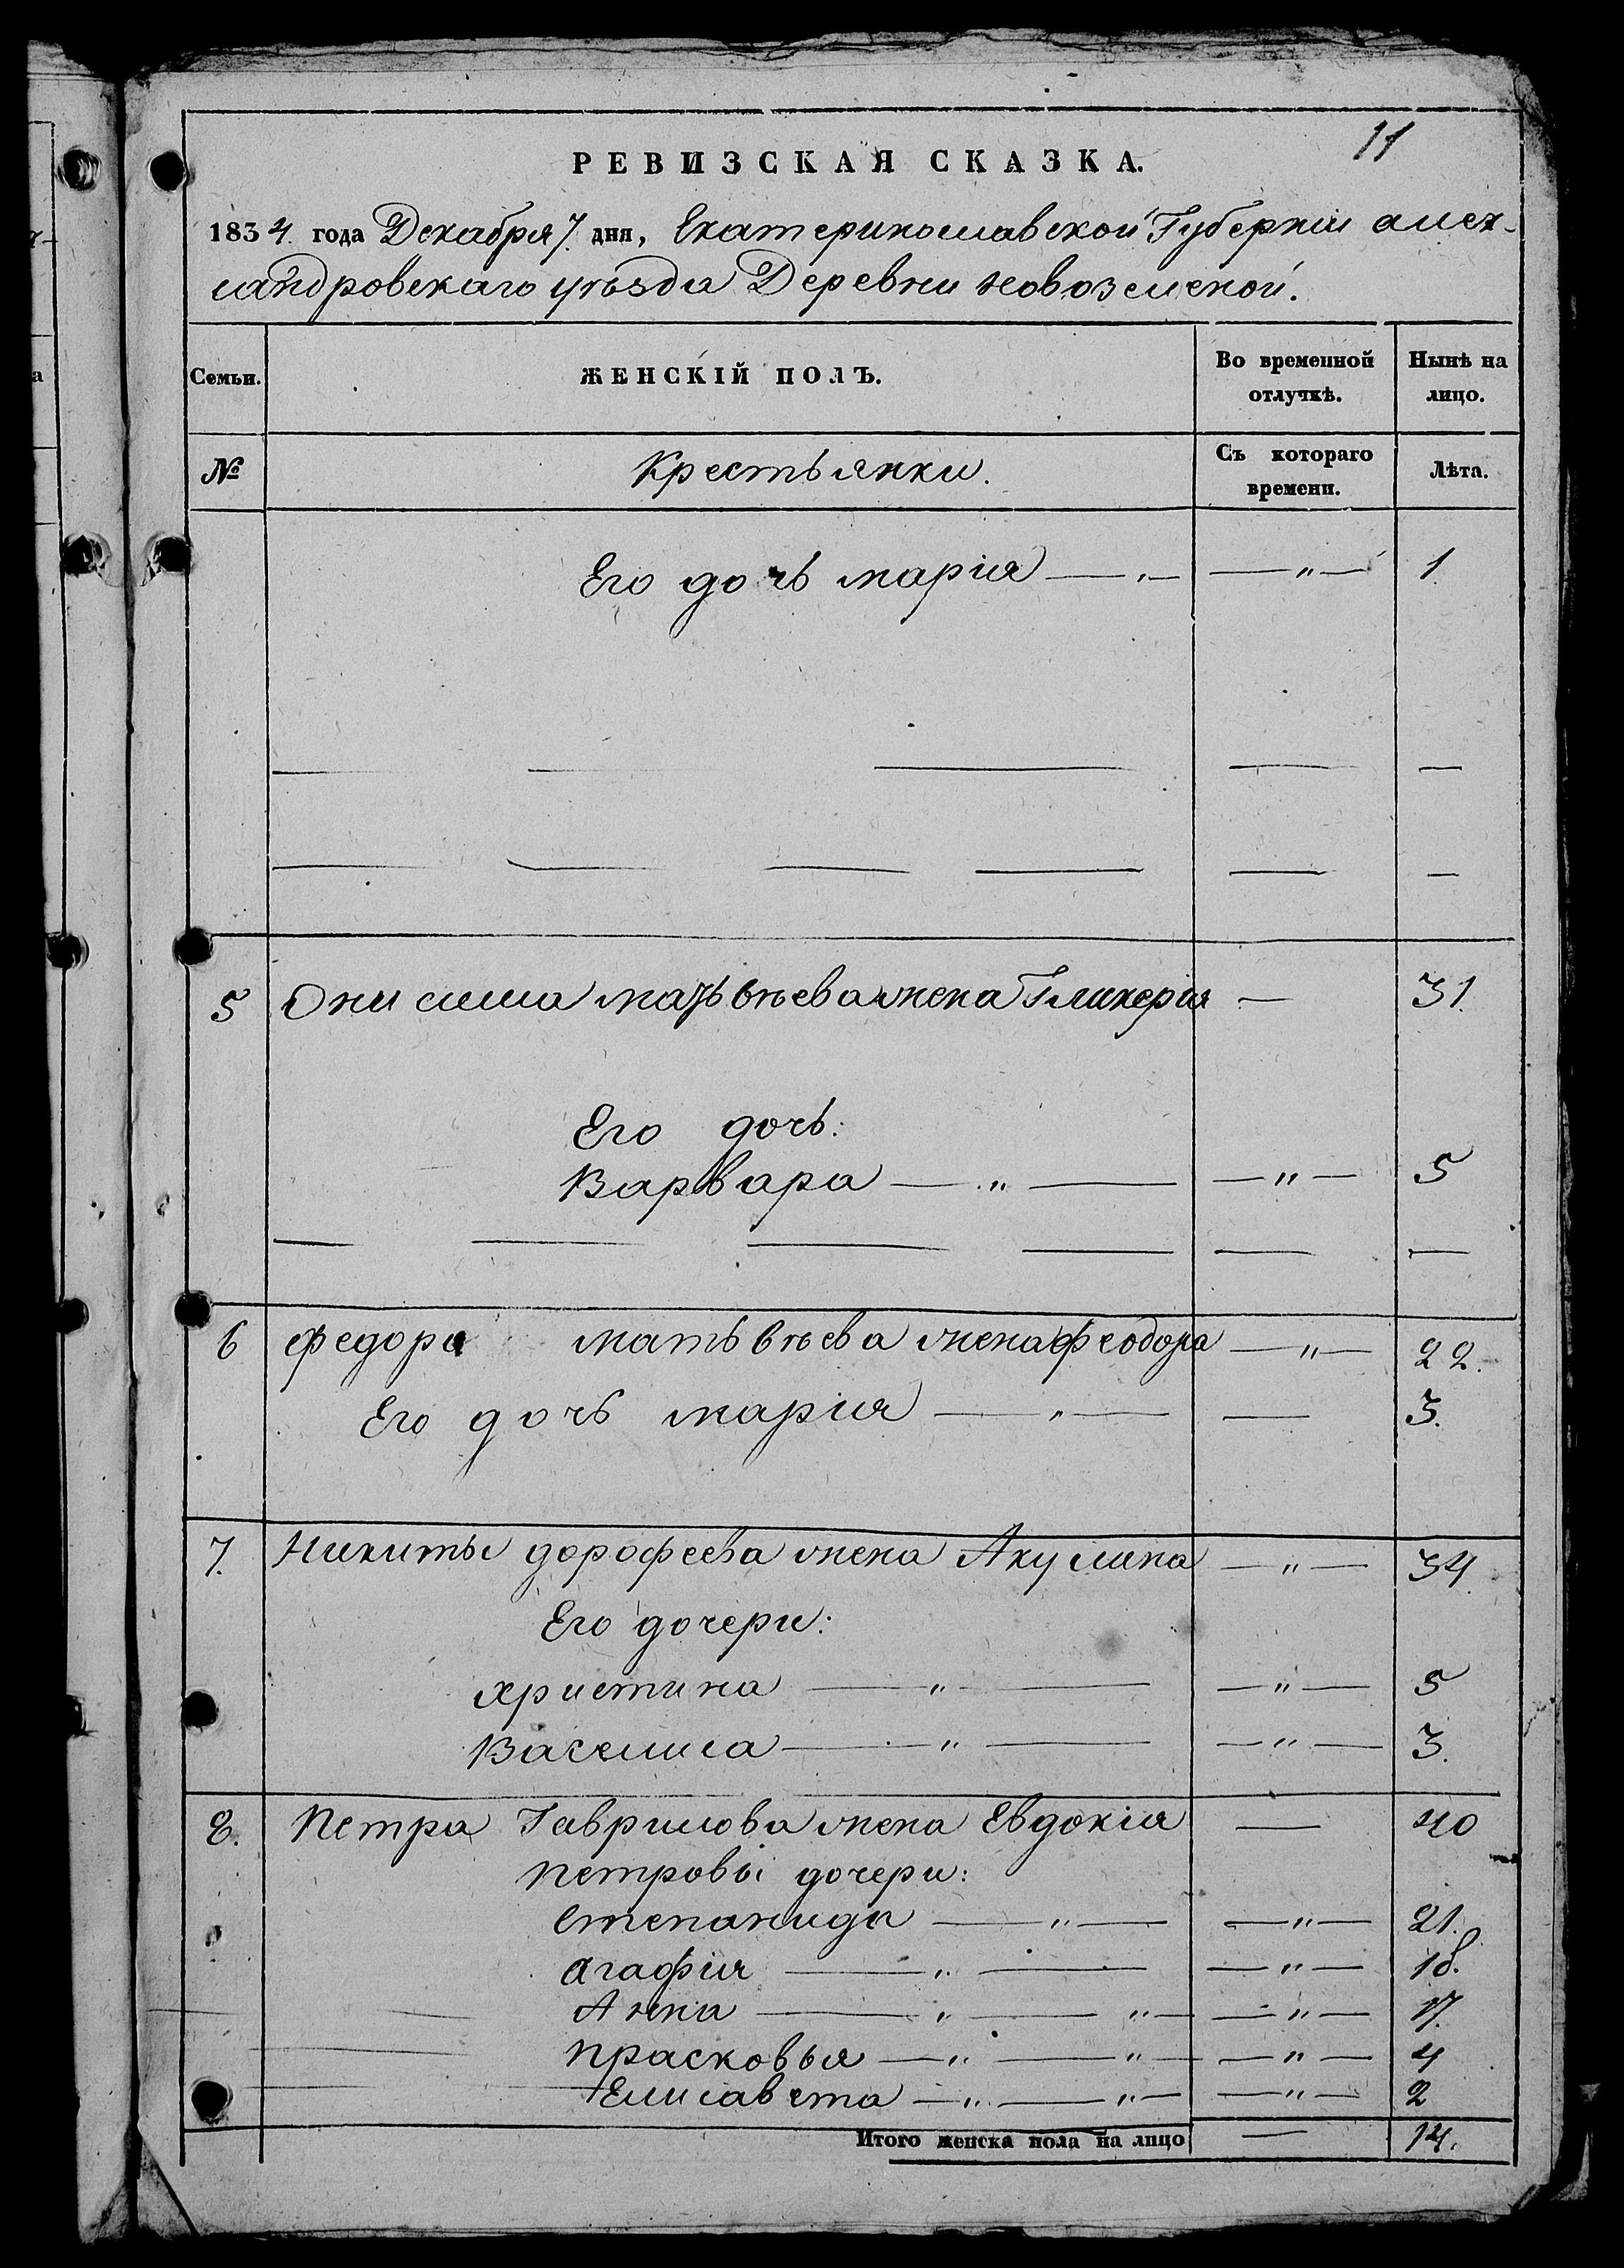 11
РЕВИЗСКАЯ СКАЗКА.
1834. года Декабря 7. дня, Екатеринославской Губернiи алек-
сандровскаго уѣзда Деревни новоземской.
Семьи. ЖЕНСКІЙ ПОЛЪ. Во временной отлучкѣ. Нынѣ на лицо.
№ Крестьянки. Съ котораго времени. Лѣта.
Его дочь марiя — „ — — „ — 1.
5 Онисима матьвѣева жена Гликерiя — 31.
Его дочь:
Варвара — „ — — „ — 5
6 федора матьвѣева жена феодора — „ — 22.
Его дочь марiя — „ — — 3.
7. Никиты дорофеева жена Акулина — „ — 34
Его дочери:
христина — „ — — „ — 5
Василиса — „ — — „ — 3.
8. Петра Гаврилова жена Евдокiя — 40
петровы дочери:
степанида — „ — — „ — 21.
агафiя — „ — — „ — 18.
Анна — „ — „ — — „ — 17.
прасковья — „ — „ — — „ — 4
Елисавета — „ — „ — — „ — 2
Итого женска пола на лицо — 14.